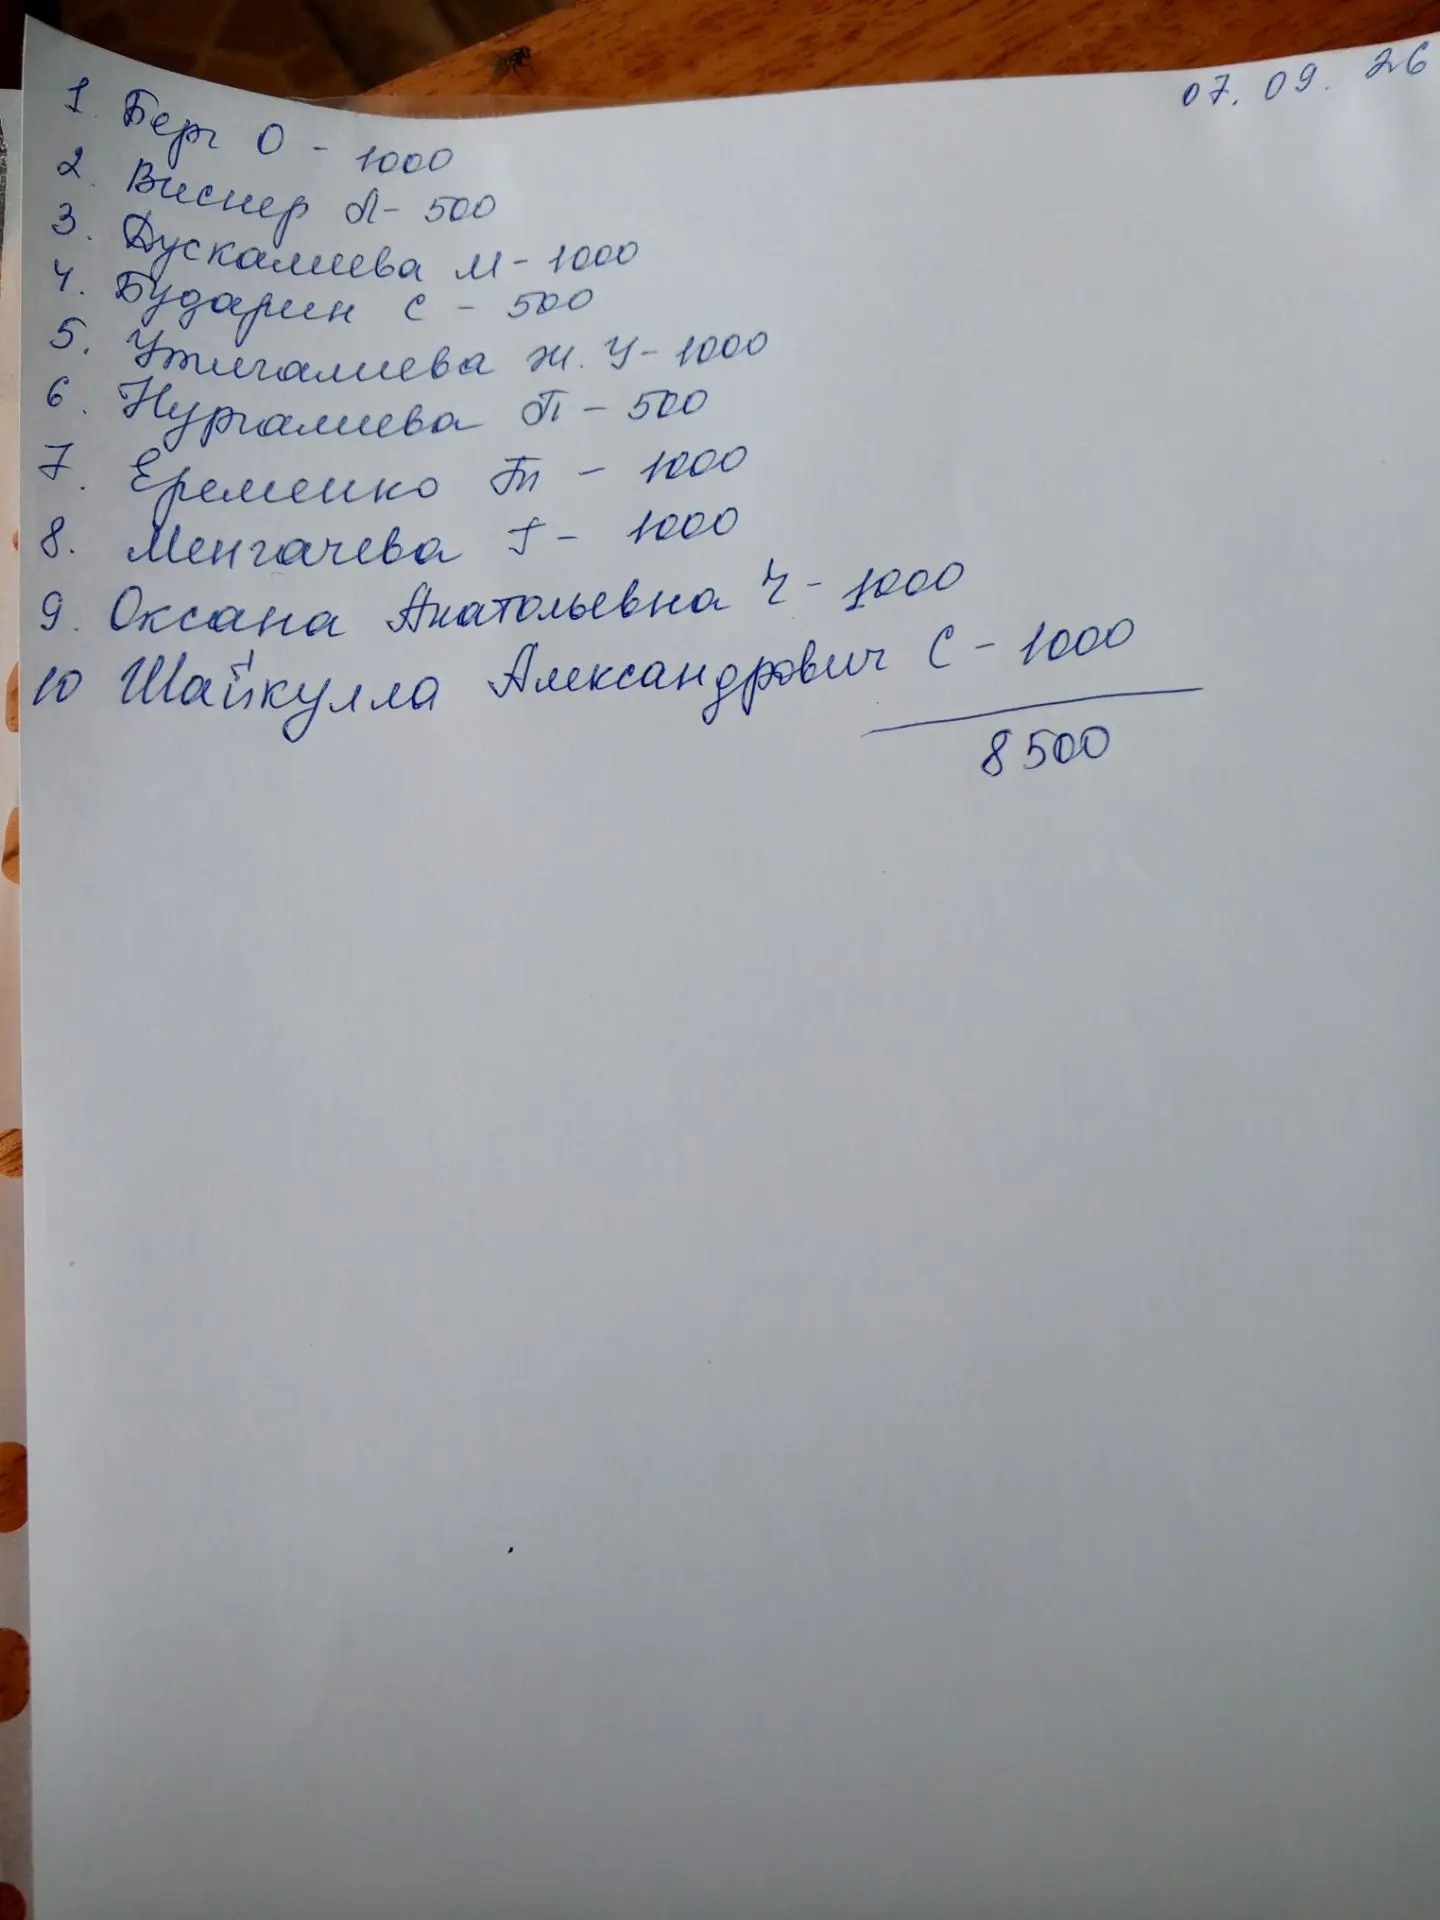 07.09.26
1. Берг О - 1000
2. Виснер Л - 500
3. Дускалиева М - 1000
4. Бударин С - 500
5. Утигалиева Ж. У - 1000
6. Нургалиева П - 500
7. Еременко Тп - 1000
8. Менгачева Г - 1000
9. Оксана Анатольевна Ч - 1000
10 Шайкулла Александрович С - 1000
8500